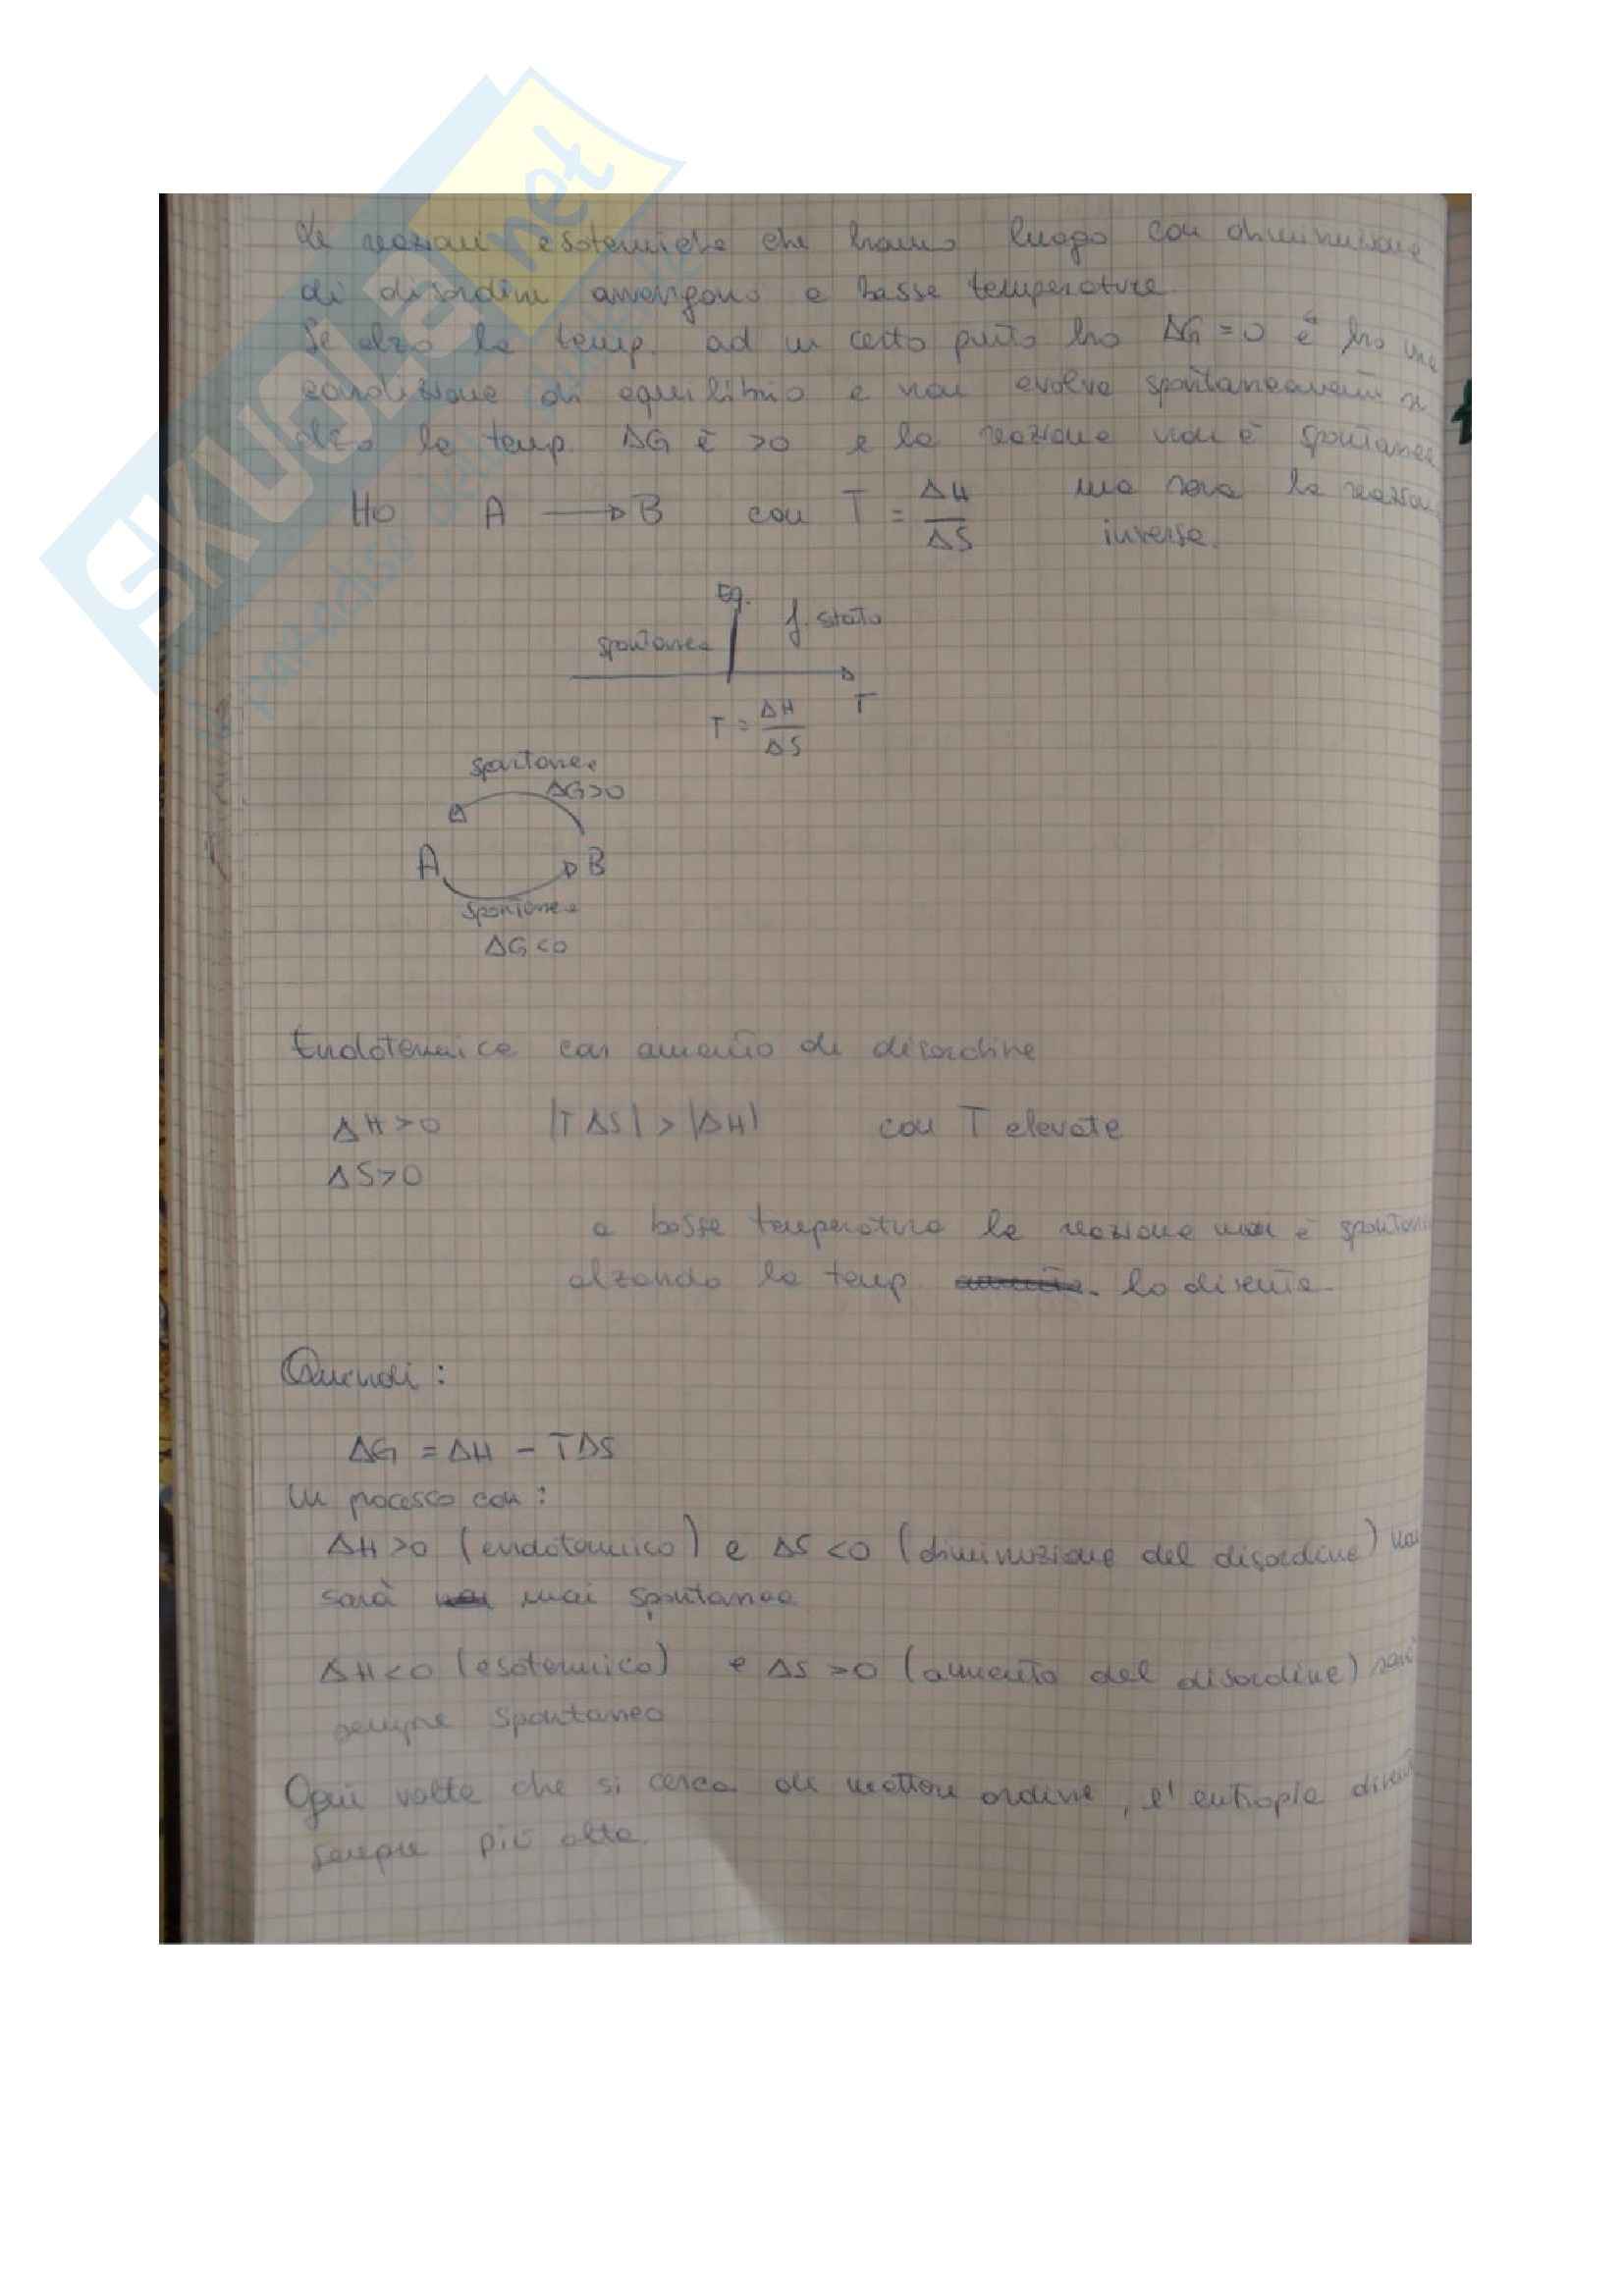 SKUOLA.net
Le reazioni esotermiche che hanno luogo con diminuzione
di disordine avvengono a basse temperature.
Se alzo la temp. ad un certo punto ho ΔG = 0 e ho una
condizione di equilibrio e non evolve spontaneamente se
alzo la temp. ΔG è >0 e la reazione non è spontanea
Ho A → B con T = ΔH/ΔS ma sarà la reazione
inversa.
Eq.
spontanea f. stato
T
T = ΔH/ΔS
spontanea
ΔG>0
A B
spontanea
ΔG<0
Endotermica con aumento di disordine
ΔH>0 |TΔS| > |ΔH| con T elevate
ΔS>0
a basse temperatura la reazione non è spontan
alzando la temp. lo diventa.
Quindi:
ΔG = ΔH - TΔS
Un processo con:
ΔH>0 (endotermico) e ΔS<0 (diminuzione del disordine) non
sarà mai spontaneo
ΔH<0 (esotermico) e ΔS>0 (aumento del disordine) sarà
sempre spontaneo
Ogni volta che si cerca di mettere ordine, l'entropia diventa
sempre più alta.